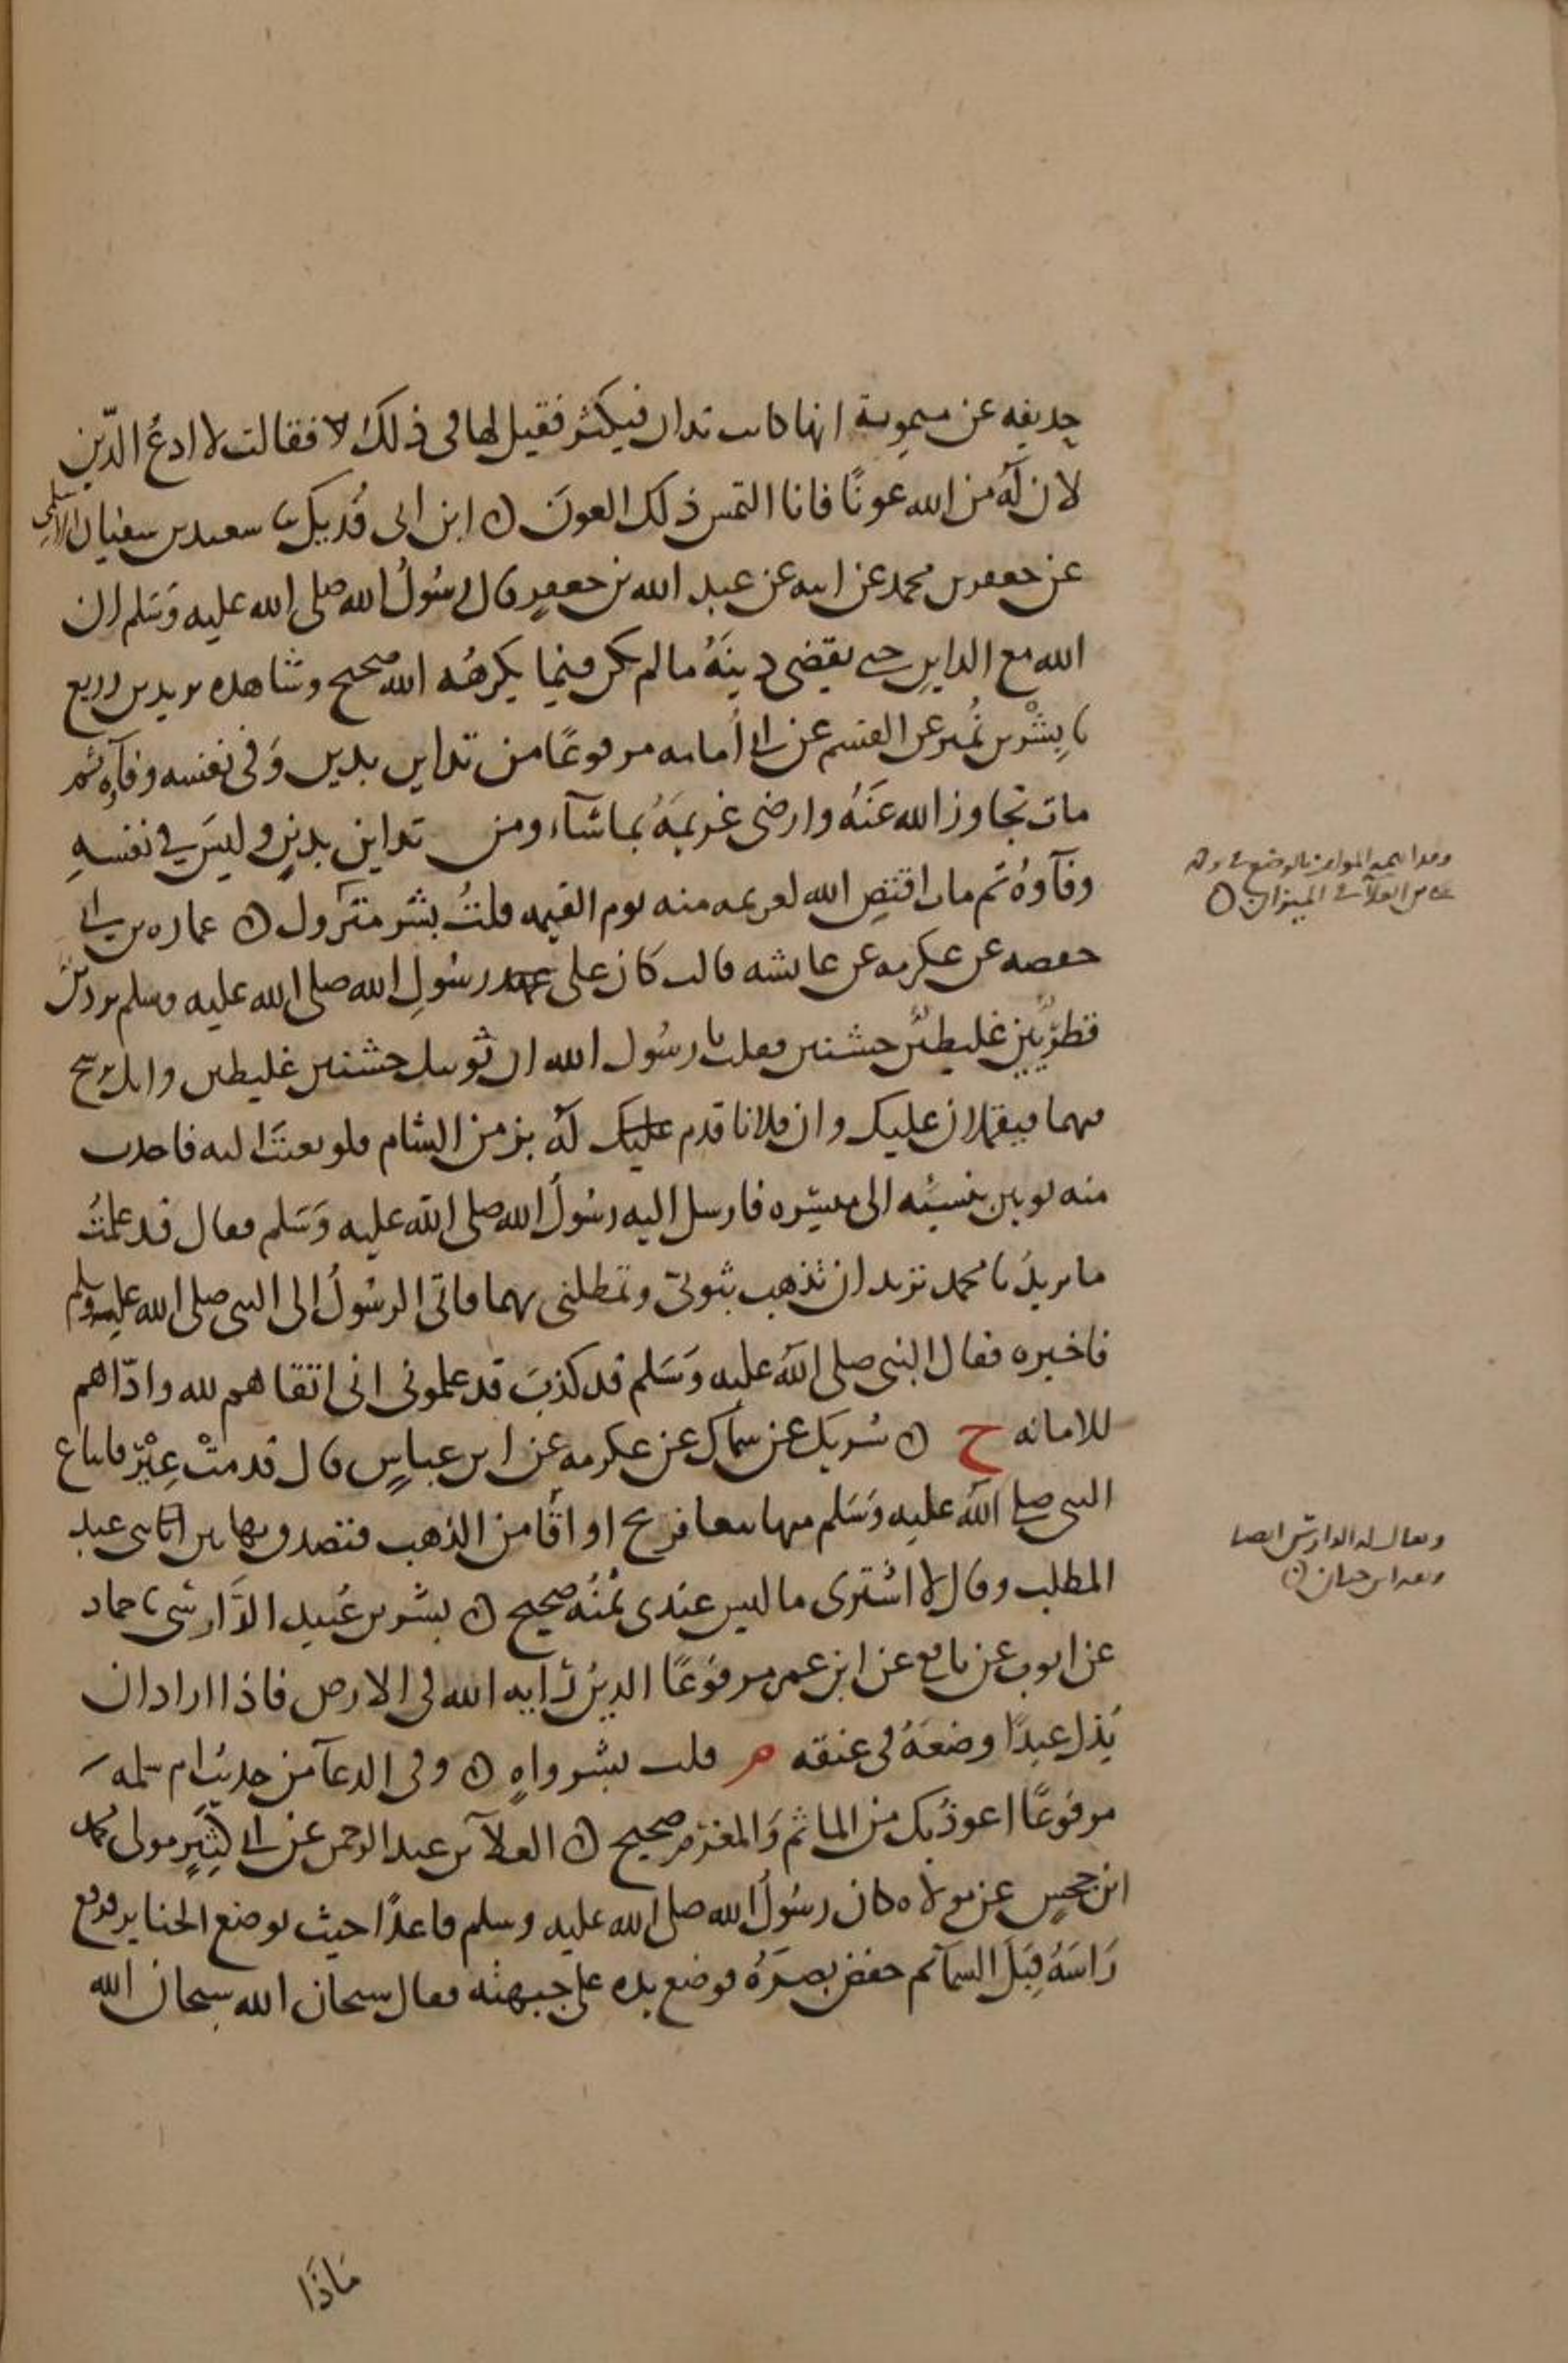 حذيفه عن ميمونة انها كانت تدان فيكثر فقيل لها في ذلك لا فقالت لا ادعُ الدّين
لان لهُ من الله عونًا فانا التمس ذلك العونَ ن ابن ابي فُديك ثنا سعيد بن سفيان الاسلمي
عن جعفر بن محمد عن ابيه عن عبد الله بن جعفرٍ قال رسُولُ الله صلى الله عليه وَسَلم ان
الله مع الداين حتى يقضى دينَهُ ما لم يكن فيما يكرهُه الله صحيح وشاهده يزيد بن زريع
ثنا بِشْر بن نُمير عن القسم عن ابي أُمامه مرفوعًا من تداين بدين وَفي نفسه وفآوه ثم
مات تجاوز الله عَنْهُ وارضى غريمَهُ بما شآء ومن تداين بدينٍ وليسَ في نفسهِ
وفآوهُ ثم مات اقتص الله لغريمه منه يوم القيمه قلتُ بشر متروك ن عماره بن ابي
حفصه عن عكرمه عن عايشه قالت كان على عهد رسُولِ الله صلى الله عليه وسلم بردين
قطريّين غليظين خشنين فقلت يا رسُول الله ان ثوبيك خشنين غليظين وانك ترشح
فيهما فيثقلان عليك وان فلانا قدم عليك لهُ بز من الشام فلو بعثتَ اليه فاخذت
منه ثوبين بنسيئه الى ميسَره فارسل اليه رسُولُ الله صلى الله عليه وَسَلم فقال قد علمتُ
ما يريدُ يا محمد تريد ان تذهب بثوبيّ وتمطلني بهما فاتى الرسُولُ الى النبي صلى الله عليه وسلم
فاخبره فقال النبي صلى اللهُ عليه وَسَلم قد كذبَ قد علموني اني اتقاهم لله وادّاهم
للامانه خ ن شريك عن سماك عن عكرمه عن ابن عباسٍ قال قدمتْ عِيْرٌ فابتاع
النبي صلى اللهُ عليه وَسَلم منها بيعا فربح اواقًا من الذهب فتصدق بها بين ايتامى عبد
المطلب وقال لا اشترى ما ليس عندى ثمنُه صحيح ن بشر بن عُبيد الدَّارِسي ثنا حماد
عن ايوب عن نافع عن ابن عمر مرفوعًا الدينُ رايه الله في الارض فاذا اراد ان
يُذل عبدًا وضعَهُ في عنقه م قلت بشر واهٍ ن وفي الدعآ من حديث ام سلمه
مرفوعًا اعوذ بك من الماثم وَالمغرم صحيح ن العلآ بن عبد الرحمن عن ابي كثِيرٍ مولى محمد
ابن جحشٍ عن مولاه كان رسُولُ الله صلى الله عليه وسلم قاعدًا حيث توضع الجنايز فرفع
رَاسَهُ قِبَلَ السمآ ثم خفض بصَرَهُ فوضع يده على جبهته فقال سبحان الله سبحان الله
ماذَا
في الميزان ن
ويقال له الدارسى ايضا
وعده ابن حبان ن